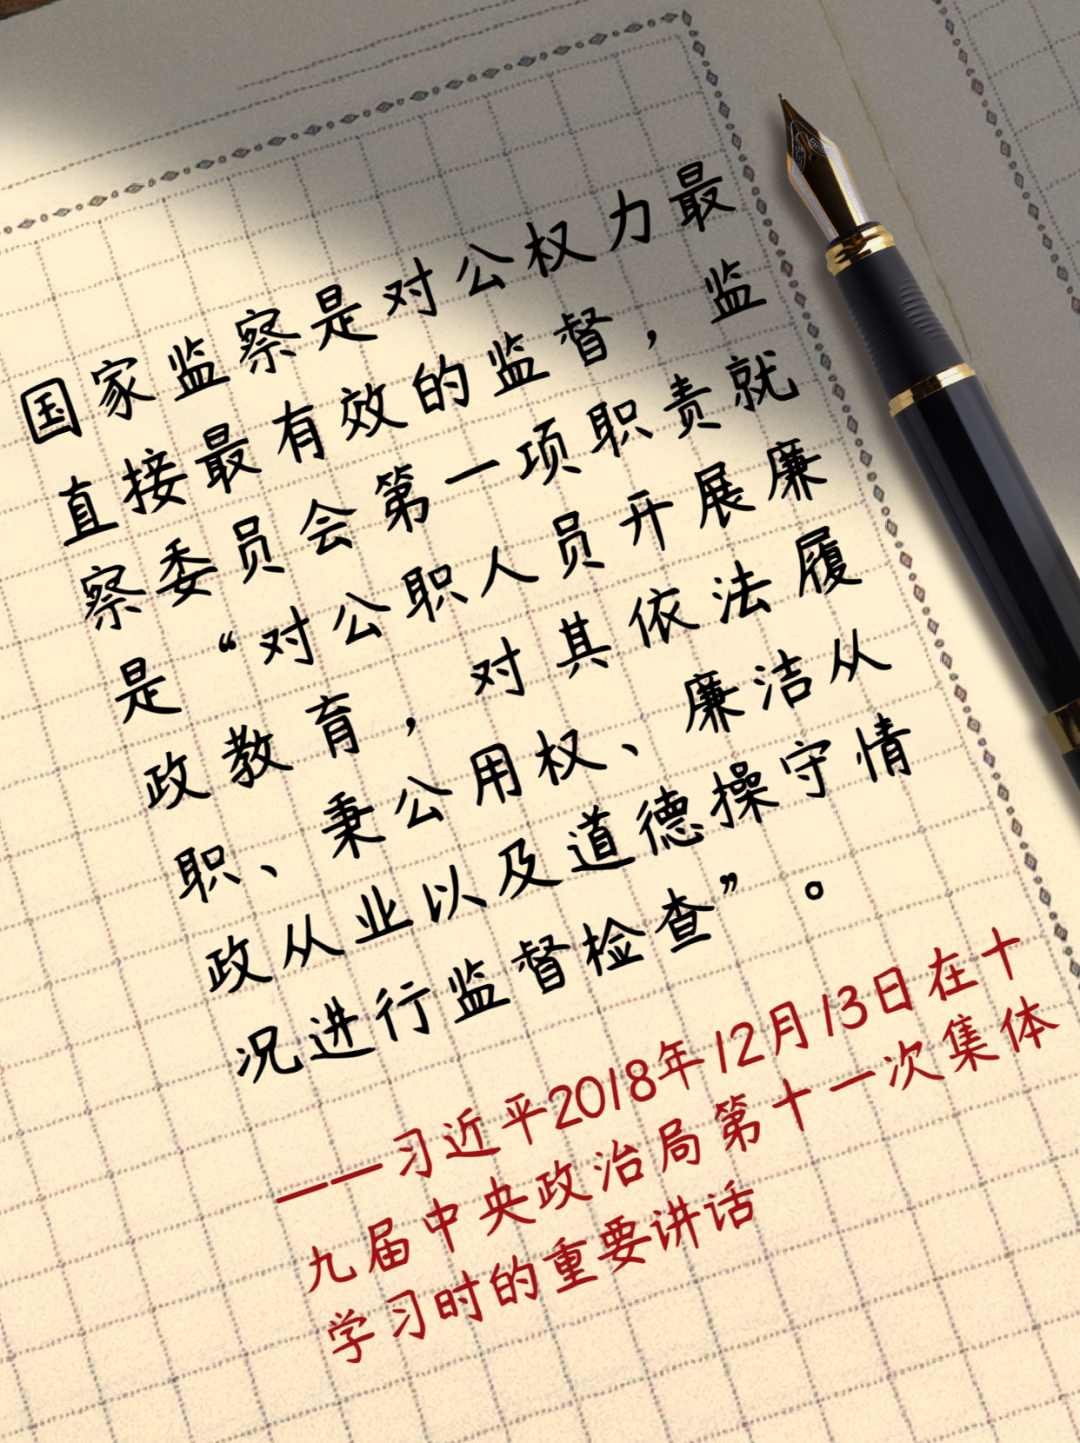 国家监察是对公权力最
直接最有效的监督，监
察委员会第一项职责就
是“对公职人员开展廉
政教育，对其依法履
职、秉公用权、廉洁从
政从业以及道德操守情
况进行监督检查”。
——习近平2018年12月13日在十
九届中央政治局第十一次集体
学习时的重要讲话